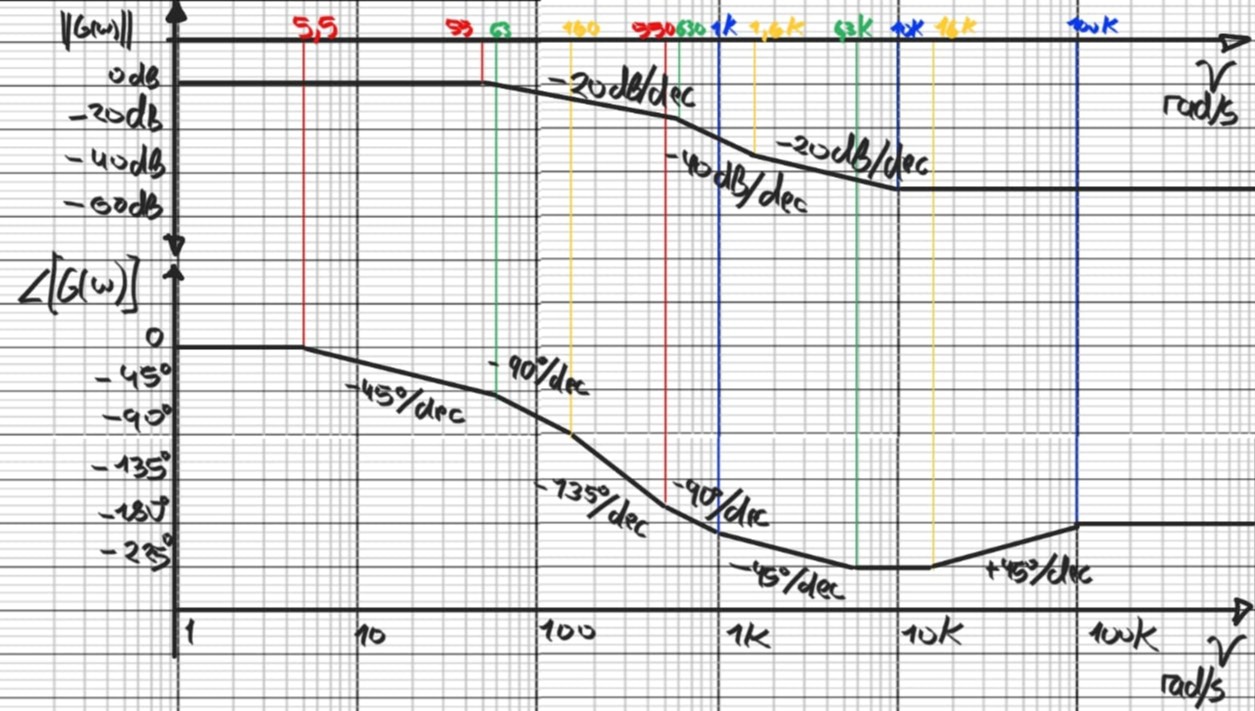 ||G(w)|| 5,5 55 63 160 550 630 1K 1,6K 6,3K 10K 16K 100K
0dB
-20dB
-40dB
-60dB
-20dB/dec
-40dB/dec
-20dB/dec
rad/s
∠[G(w)]
0
-45°
-90°
-135°
-180°
-225°
-45°/dec
-90°/dec
-135°/dec
-90°/dec
-45°/dec
+45°/dec
1 10 100 1K 10K 100K
rad/s